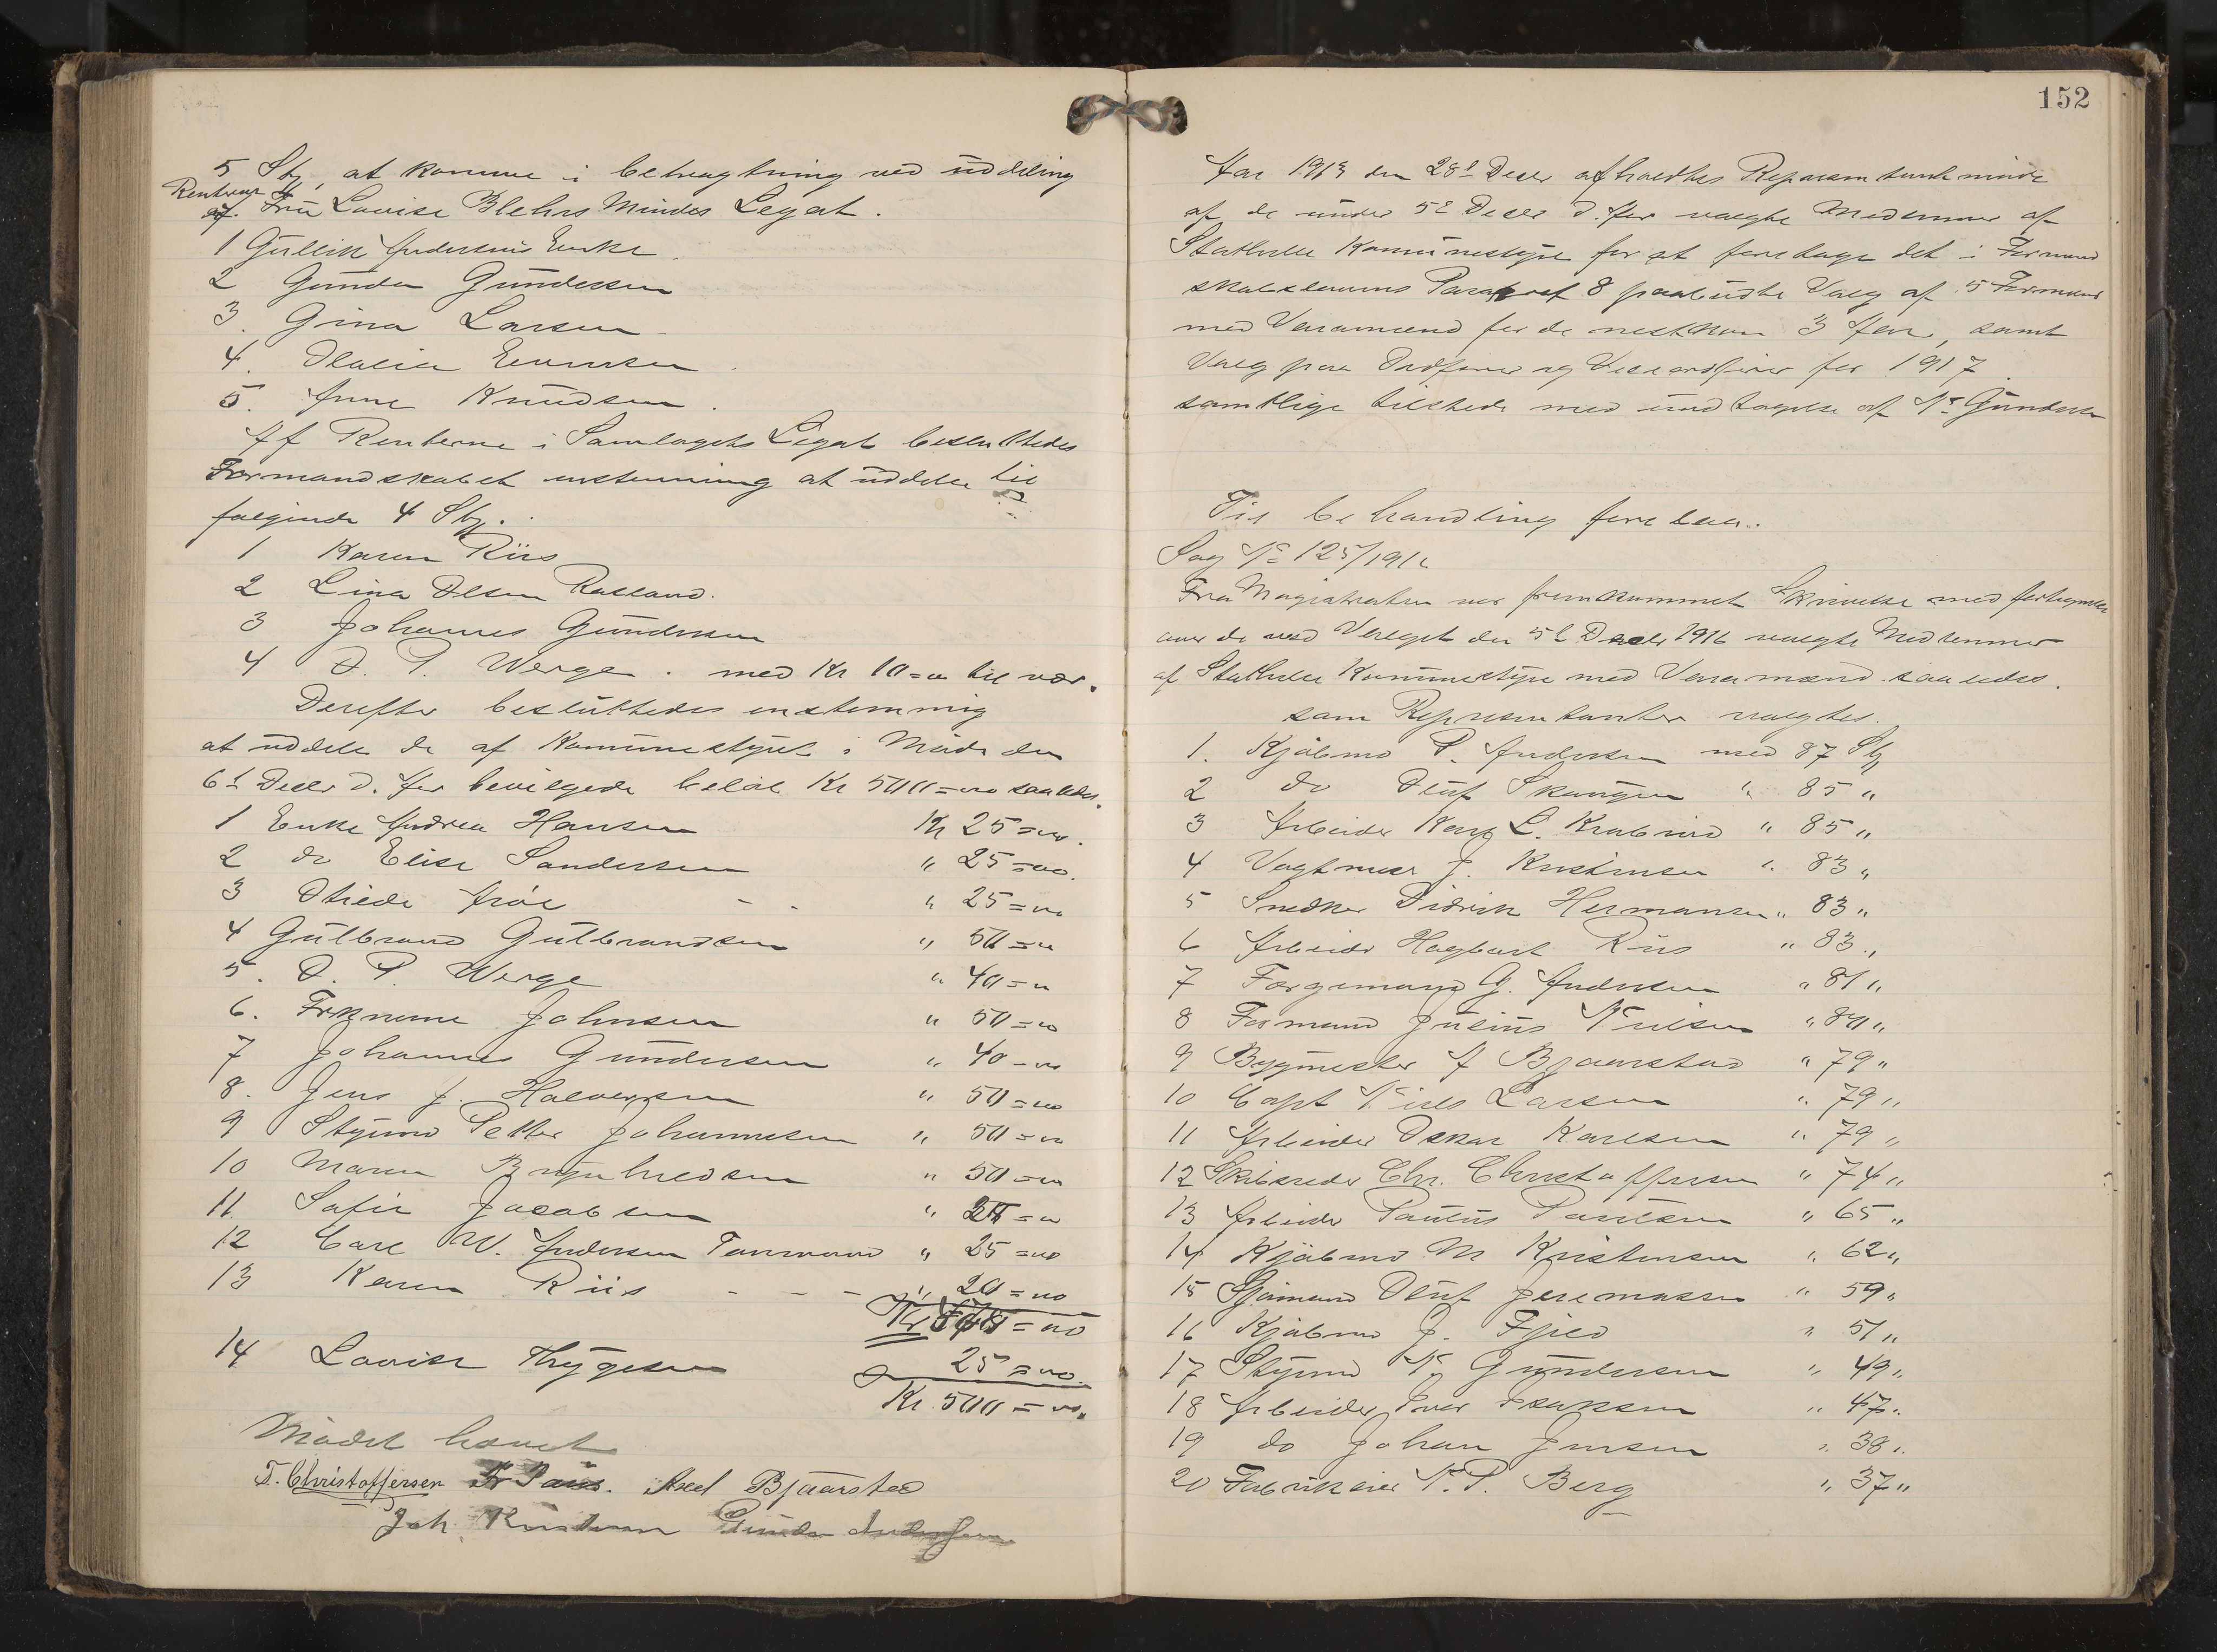 5 Stk, at komme i betragtning ved uddeling
Renterne
af Fru Lovise Blehrs Mindes Legat.
1 Gullik Andersens Enke
2 Gunda Gundersen
3. Gina Larsen
4. Olava Evensen
5. Anne Knudsen
Af Renterne i Samlagets Legat besluttedes
Formandskabet enstemmig at uddele til
følgende 4 Stk.
1 Karen Riis
2 Lina Olsen Rasland.
3 Johannes Gundersen
4 O. P. Werge. med Kr 10=00 til vær.
Derefter besluttedes enstemmig
at uddele de af Kommunestyret i Møde den
6t Decbr d. Aar bevilgede beløb Kr 500=00 saaledes.
1 Enke Andrea Hansen Kr 25=00.
2 do Elise Sandersen " 25=00.
3 Otilede Arøe - - " 25=00
4 Gulbrand Gulbrandsen " 50=00
5. O. P. Werge " 40=00
6. Johnsen " 50=00
7 Johannes Gundersen " 40=00
8. Jens J. Halvorsen " 50=00
9 Styrmd Petter Johannesen " 50=00
10 Maren Brynhildsen " 50=00
11. Sofie Jacobsen " =00
12 Carl W. Andersen Tanmoen " 25=00
13 Karen Riis - - - " 20=00
Kr =00
14 Lovise Thygesen 25=00.
Kr 500=00.
Mødet hævet
T. Christoffersen Axel Bjaarstad
Joh. Kristensen Gunder Andersen
152
Aar 1916 den 28d Decbr afholdtes Repræsentantmøde
af de under 5te Decbr d. Aar valgte Medlemmer af
Stathelle Kommunestyre for at foretage det i Formand
skabslovens Paragraf 8 paabudte Valg af 5 Formænd
med Varamænd for de nestkom 3 Aar, samt
Valg paa Ordfører og Viseordfører for 1917.
samtlige tilstede med undtagelse af N. Gundersen
Til behandling forelaa.
Sag No 125/1916
Fra Magistraten var fremkommet Skrivelse med fortegnelse
over de ved Valget den 5te Decbr 1916 valgte Medlemmer
af Stathelle Kommunestyre med Varamænd saaledes.
som Repræsentanter valgtes.
1. Kjøbmd P. Andersen med 87 St
2 do Oluf Skaugen " 85 "
3 Arbeider Karl L. Krabørd " 85 "
4 Vagtmester J. Kristensen " 83 "
5 Snedker Didrik Hermansen " 83 "
6 Arbeider Hagbart Riis " 83 "
7 Færgemand G. Andersen " 81 "
8 Formand Julius Nielsen " 80 "
9 Bygmester A Bjaarstad " 79 "
10 Capt Niels Larsen " 79 "
11 Arbeider Oskar Karlsen " 79 "
12 Skibsreder Chr. Christoffersen " 74 "
13 Arbeider Paulus Paulsen " 65 "
14 Kjøbmd M Kristensen " 62 "
15 Sjømand Oluf Jeremiassen " 59 "
16 Kjøbmd J. Fjeld " 51 "
17 Styrmd N. Gundersen " 49 "
18 Arbeider Iver Isaksen " 47 "
19 do Johan Jensen " 38 "
20 Fabrikeier N. P. Berg " 37 "